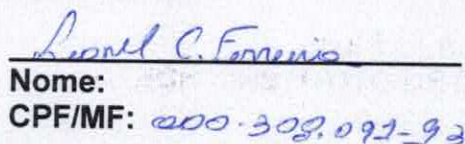 Leonel C. Ferreira
Nome:
CPF/MF: 000.308.092-93